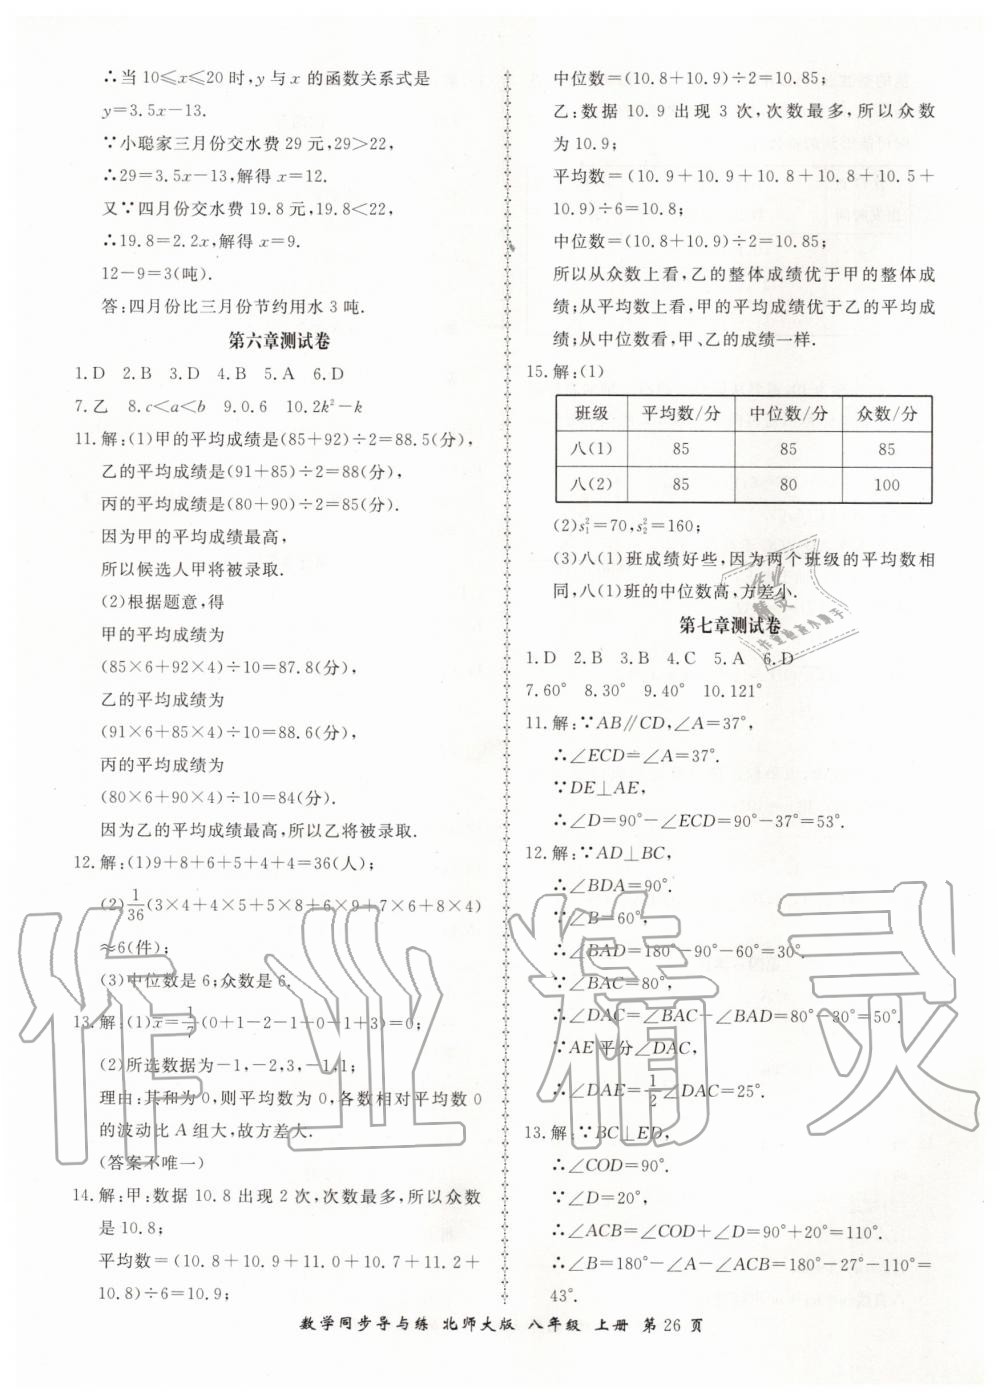 ∴当 10≤x≤20 时,y 与 x 的函数关系式是
y=3.5x-13.
∵小聪家三月份交水费 29 元,29>22,
∴29=3.5x-13,解得 x=12.
又∵四月份交水费 19.8 元,19.8<22,
∴19.8=2.2x,解得 x=9.
12-9=3(吨).
答:四月份比三月份节约用水 3 吨.
第六章测试卷
1.D 2.B 3.D 4.B 5.A 6.D
7.乙 8.c<a<b 9.0.6 10.2k²-k
11.解:(1)甲的平均成绩是(85+92)÷2=88.5(分),
乙的平均成绩是(91+85)÷2=88(分),
丙的平均成绩是(80+90)÷2=85(分).
因为甲的平均成绩最高,
所以候选人甲将被录取.
(2)根据题意,得
甲的平均成绩为
(85×6+92×4)÷10=87.8(分),
乙的平均成绩为
(91×6+85×4)÷10=88.6(分),
丙的平均成绩为
(80×6+90×4)÷10=84(分).
因为乙的平均成绩最高,所以乙将被录取.
12.解:(1)9+8+6+5+4+4=36(人);
(2)1/36(3×4+4×5+5×8+6×9+7×6+8×4)
≈6(件);
(3)中位数是 6;众数是 6.
13.解:(1)x̄=1/7(0+1-2-1+0-1+3)=0;
(2)所选数据为-1,-2,3,-1,1;
理由:其和为 0,则平均数为 0,各数相对平均数 0
的波动比 A 组大,故方差大.
(答案不唯一)
14.解:甲:数据 10.8 出现 2 次,次数最多,所以众数
是 10.8;
平均数=(10.8+10.9+11.0+10.7+11.2+
10.8)÷6=10.9;
中位数=(10.8+10.9)÷2=10.85;
乙:数据 10.9 出现 3 次,次数最多,所以众数
为 10.9;
平均数=(10.9+10.9+10.8+10.8+10.5+
10.9)÷6=10.8;
中位数=(10.8+10.9)÷2=10.85;
所以从众数上看,乙的整体成绩优于甲的整体成
绩;从平均数上看,甲的平均成绩优于乙的平均成
绩;从中位数看,甲、乙的成绩一样.
15.解:(1)
班级 平均数/分 中位数/分 众数/分
八(1) 85 85 85
八(2) 85 80 100
(2)s₁²=70,s₂²=160;
(3)八(1)班成绩好些,因为两个班级的平均数相
同,八(1)班的中位数高,方差小.
第七章测试卷
1.D 2.B 3.B 4.C 5.A 6.D
7.60° 8.30° 9.40° 10.121°
11.解:∵AB∥CD,∠A=37°,
∴∠ECD=∠A=37°.
∵DE⊥AE,
∴∠D=90°-∠ECD=90°-37°=53°.
12.解:∵AD⊥BC,
∴∠BDA=90°.
∵∠B=60°,
∴∠BAD=180°-90°-60°=30°.
∵∠BAC=80°,
∴∠DAC=∠BAC-∠BAD=80°-30°=50°.
∵AE 平分∠DAC,
∴∠DAE=1/2∠DAC=25°.
13.解:∵BC⊥ED,
∴∠COD=90°.
∵∠D=20°,
∴∠ACB=∠COD+∠D=90°+20°=110°.
∴∠B=180°-∠A-∠ACB=180°-27°-110°=
43°.
数学同步导与练 北师大版 八年级 上册 第 26 页
作业精灵
作业精灵